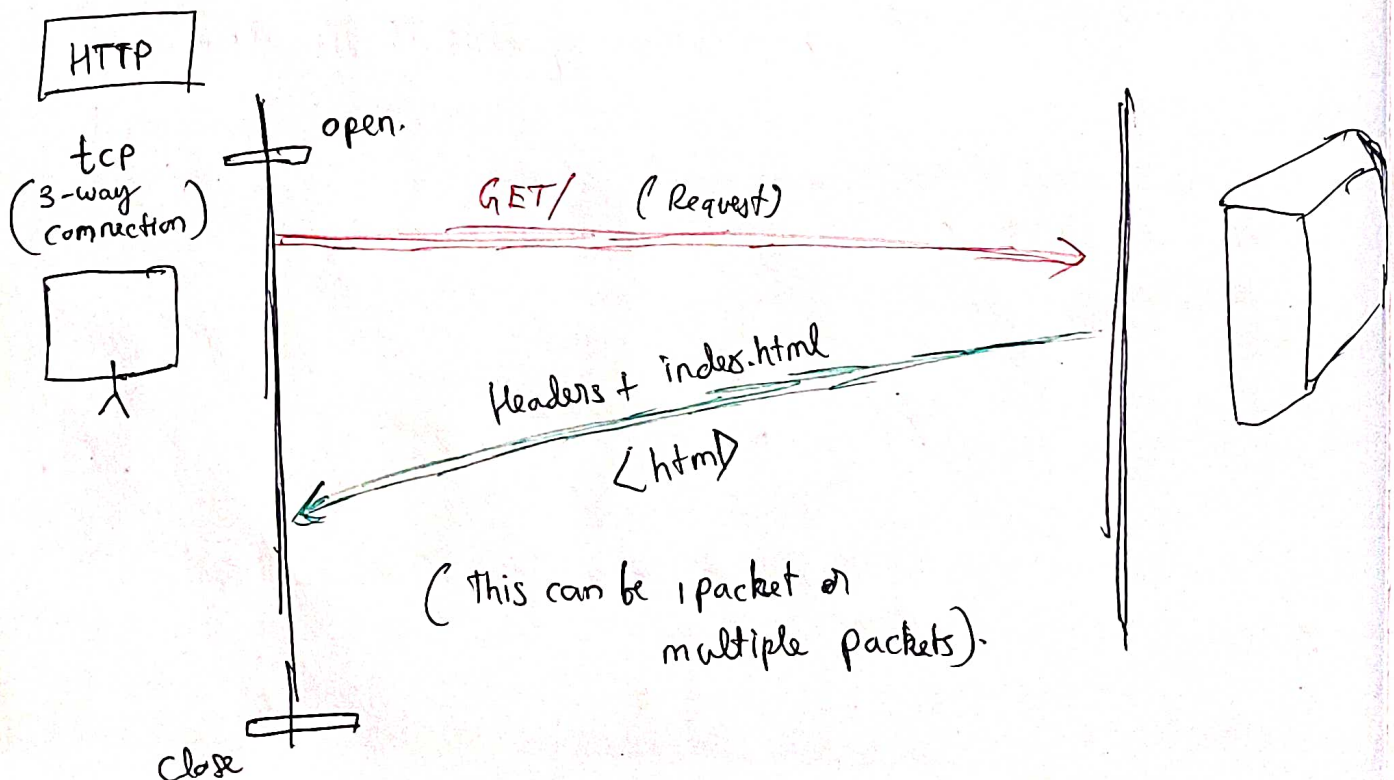 HTTP
open.
tcp
(3-way
connection)
GET/ (Request)
Headers + index.html
<html>
(This can be 1 packet or
multiple packets).
Close